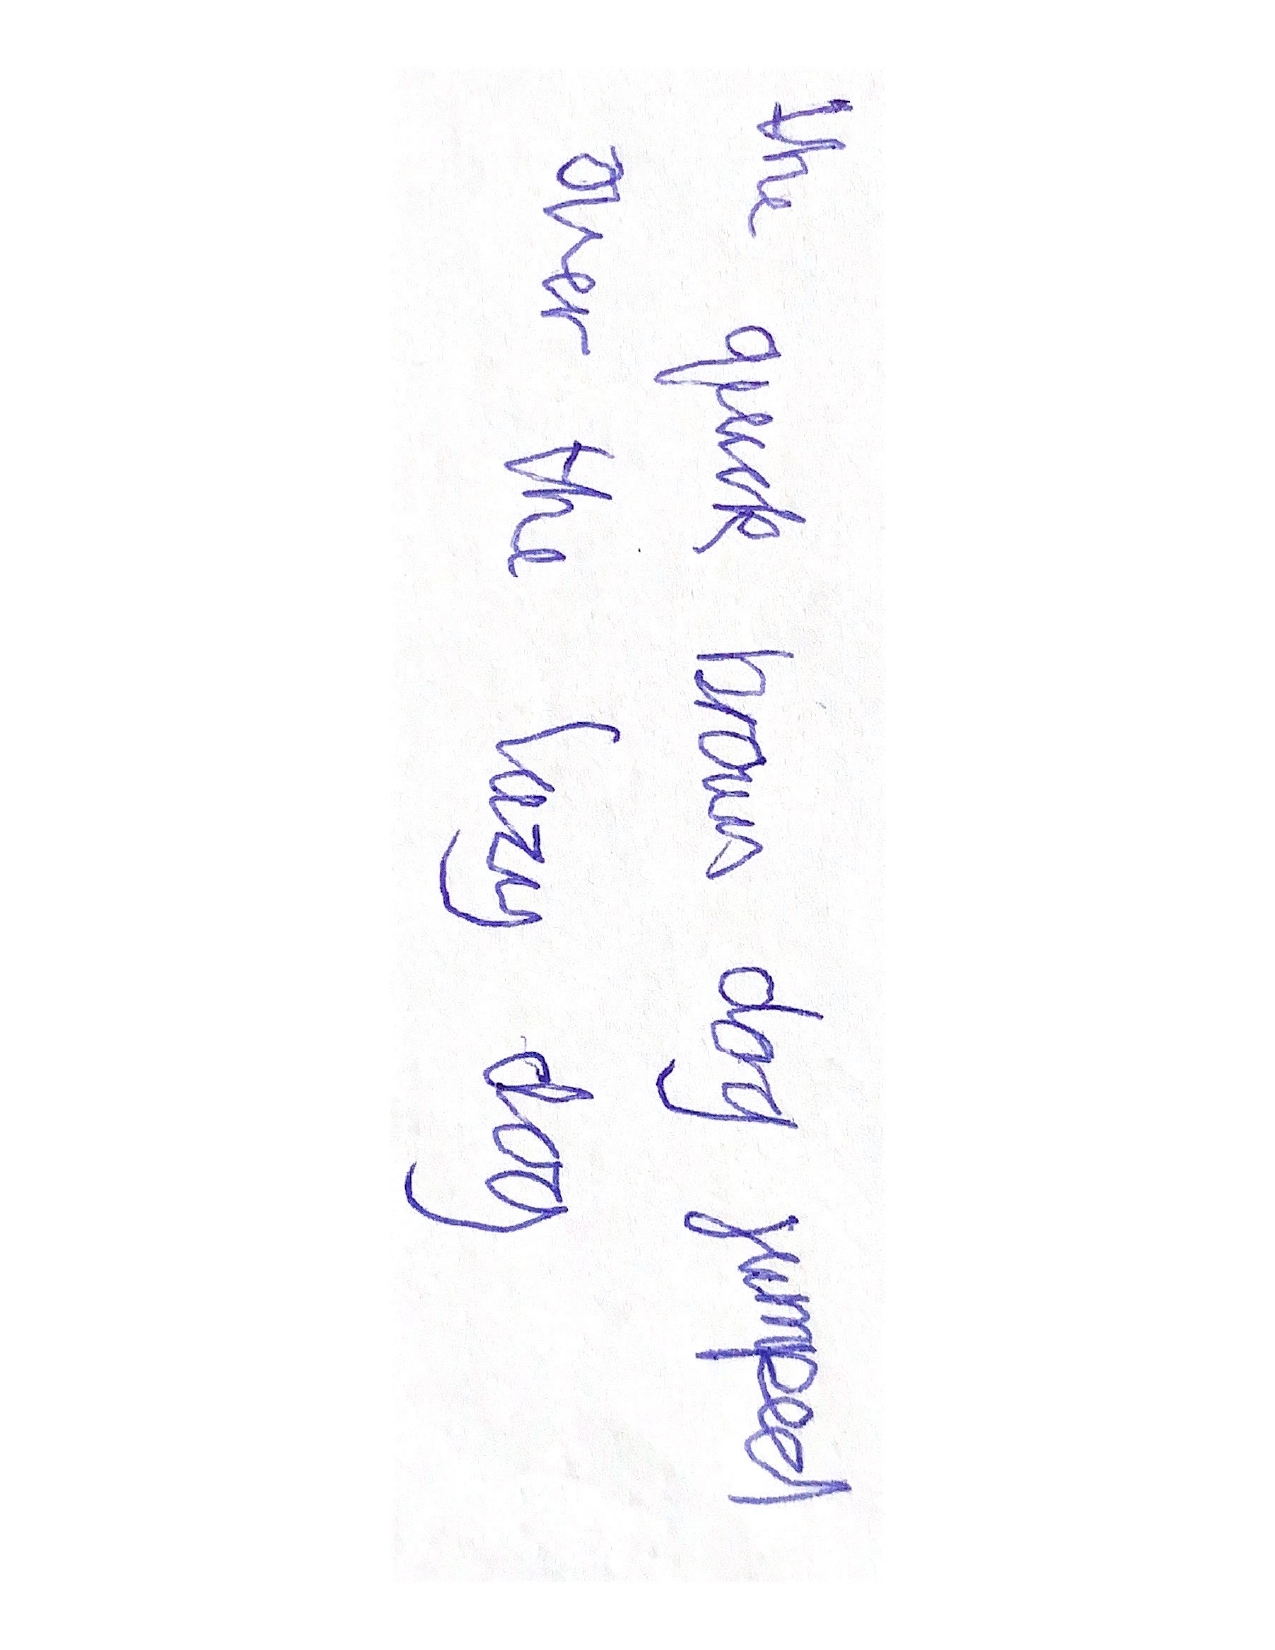 the quick brown dog jumped
over the lazy dog